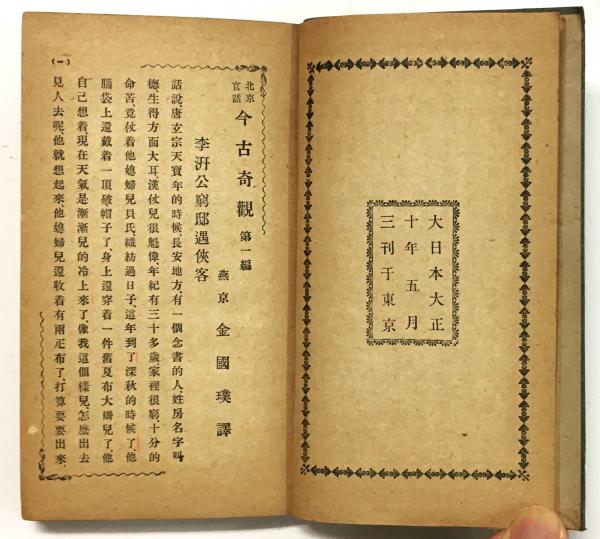 大日本大正
十年五月
三刊于東京
北京
官話
今古奇觀 第一編
燕京 金國璞譯
李汧公窮邸遇俠客
話說、唐玄宗天寶年的時候、長安地方有一個念書的人、姓房名字叫
德、生得方面大耳、漢仗兒很魁偉、年紀有三十多歲、家裡很窮、十分的
命苦、竟仗着他媳婦兒貝氏、織紡過日子、這年到了深秋的時候了、他
腦袋上還戴着一頂破帽子了、身上還穿着一件舊夏布大褂兒了、他
自己想着、現在天氣是漸漸兒的冷上來了、像我這個樣兒、怎麼出去
見人去呢、他就想起來、他媳婦兒還收着有兩疋布了、打算要要出來、
(一)